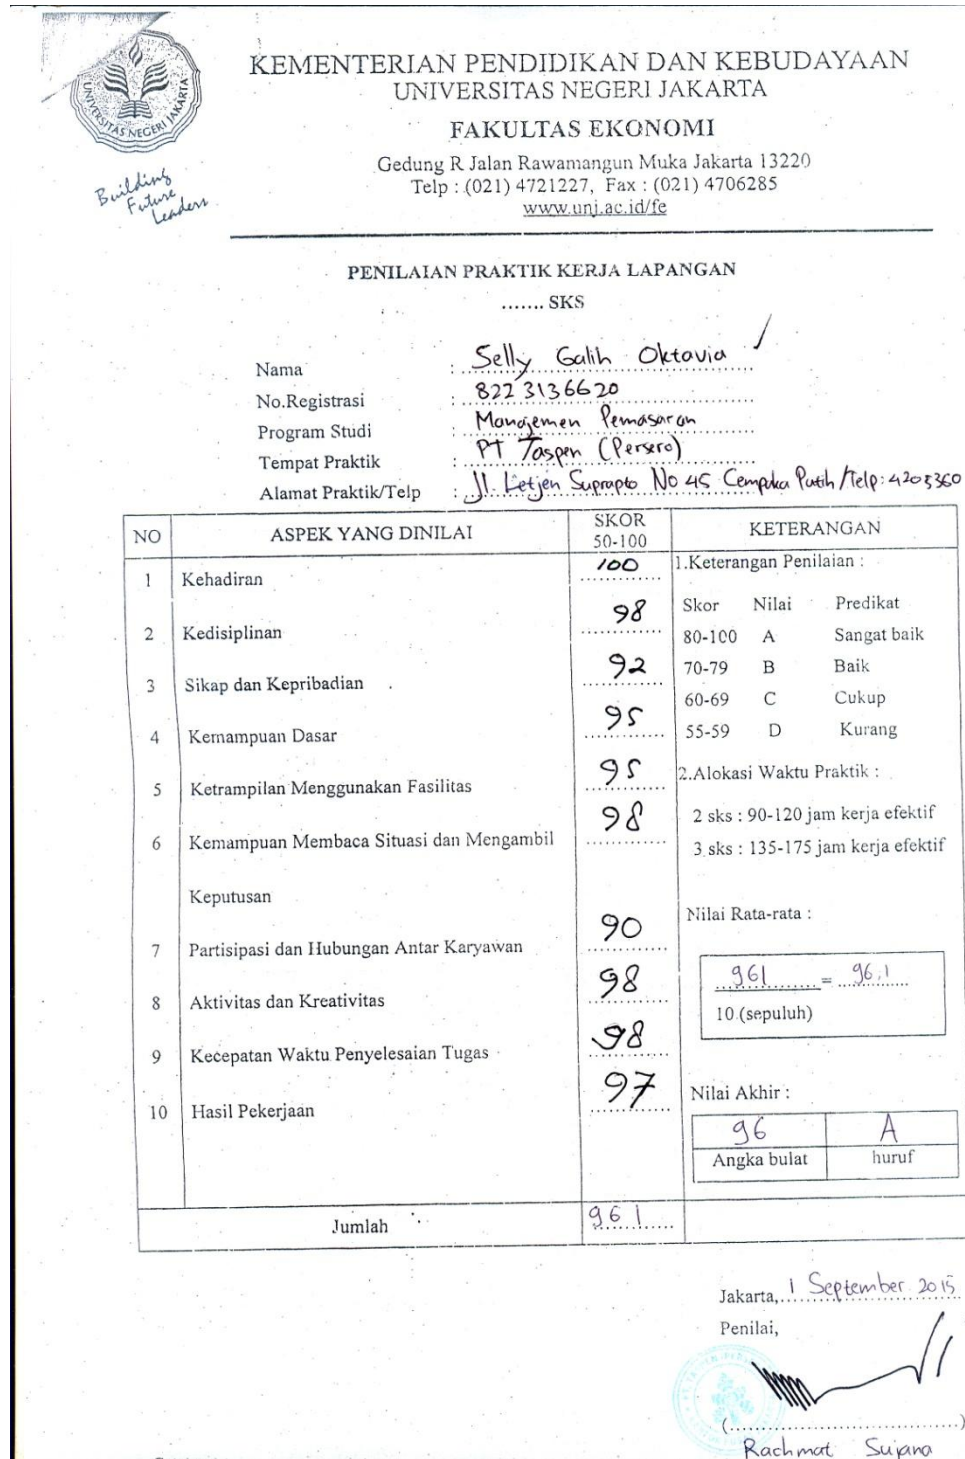 UNIVERSITAS NEGERI JAKARTA
Building
Future
Leaders
KEMENTERIAN PENDIDIKAN DAN KEBUDAYAAN
UNIVERSITAS NEGERI JAKARTA
FAKULTAS EKONOMI
Gedung R Jalan Rawamangun Muka Jakarta 13220
Telp : (021) 4721227, Fax : (021) 4706285
www.unj.ac.id/fe
PENILAIAN PRAKTIK KERJA LAPANGAN
....... SKS
Nama : Selly Galih Oktavia
No.Registrasi : 8223136620
Program Studi : Manajemen Pemasaran
Tempat Praktik : PT Taspen (Persero)
Alamat Praktik/Telp : Jl. Letjen Suprapto No 45 Cempaka Putih /Telp: 4205360
NO ASPEK YANG DINILAI SKOR 50-100 KETERANGAN
1 Kehadiran 100
2 Kedisiplinan 98
3 Sikap dan Kepribadian 92
4 Kemampuan Dasar 95
5 Ketrampilan Menggunakan Fasilitas 95
6 Kemampuan Membaca Situasi dan Mengambil 98
Keputusan
7 Partisipasi dan Hubungan Antar Karyawan 90
8 Aktivitas dan Kreativitas 98
9 Kecepatan Waktu Penyelesaian Tugas 98
10 Hasil Pekerjaan 97
1.Keterangan Penilaian :
Skor Nilai Predikat
80-100 A Sangat baik
70-79 B Baik
60-69 C Cukup
55-59 D Kurang
2.Alokasi Waktu Praktik :
2 sks : 90-120 jam kerja efektif
3 sks : 135-175 jam kerja efektif
Nilai Rata-rata :
961 = 96,1
10 (sepuluh)
Nilai Akhir :
96 A
Angka bulat huruf
Jumlah 961
Jakarta, 1 September 2015
Penilai,
(......................................)
Rachmat Sujana